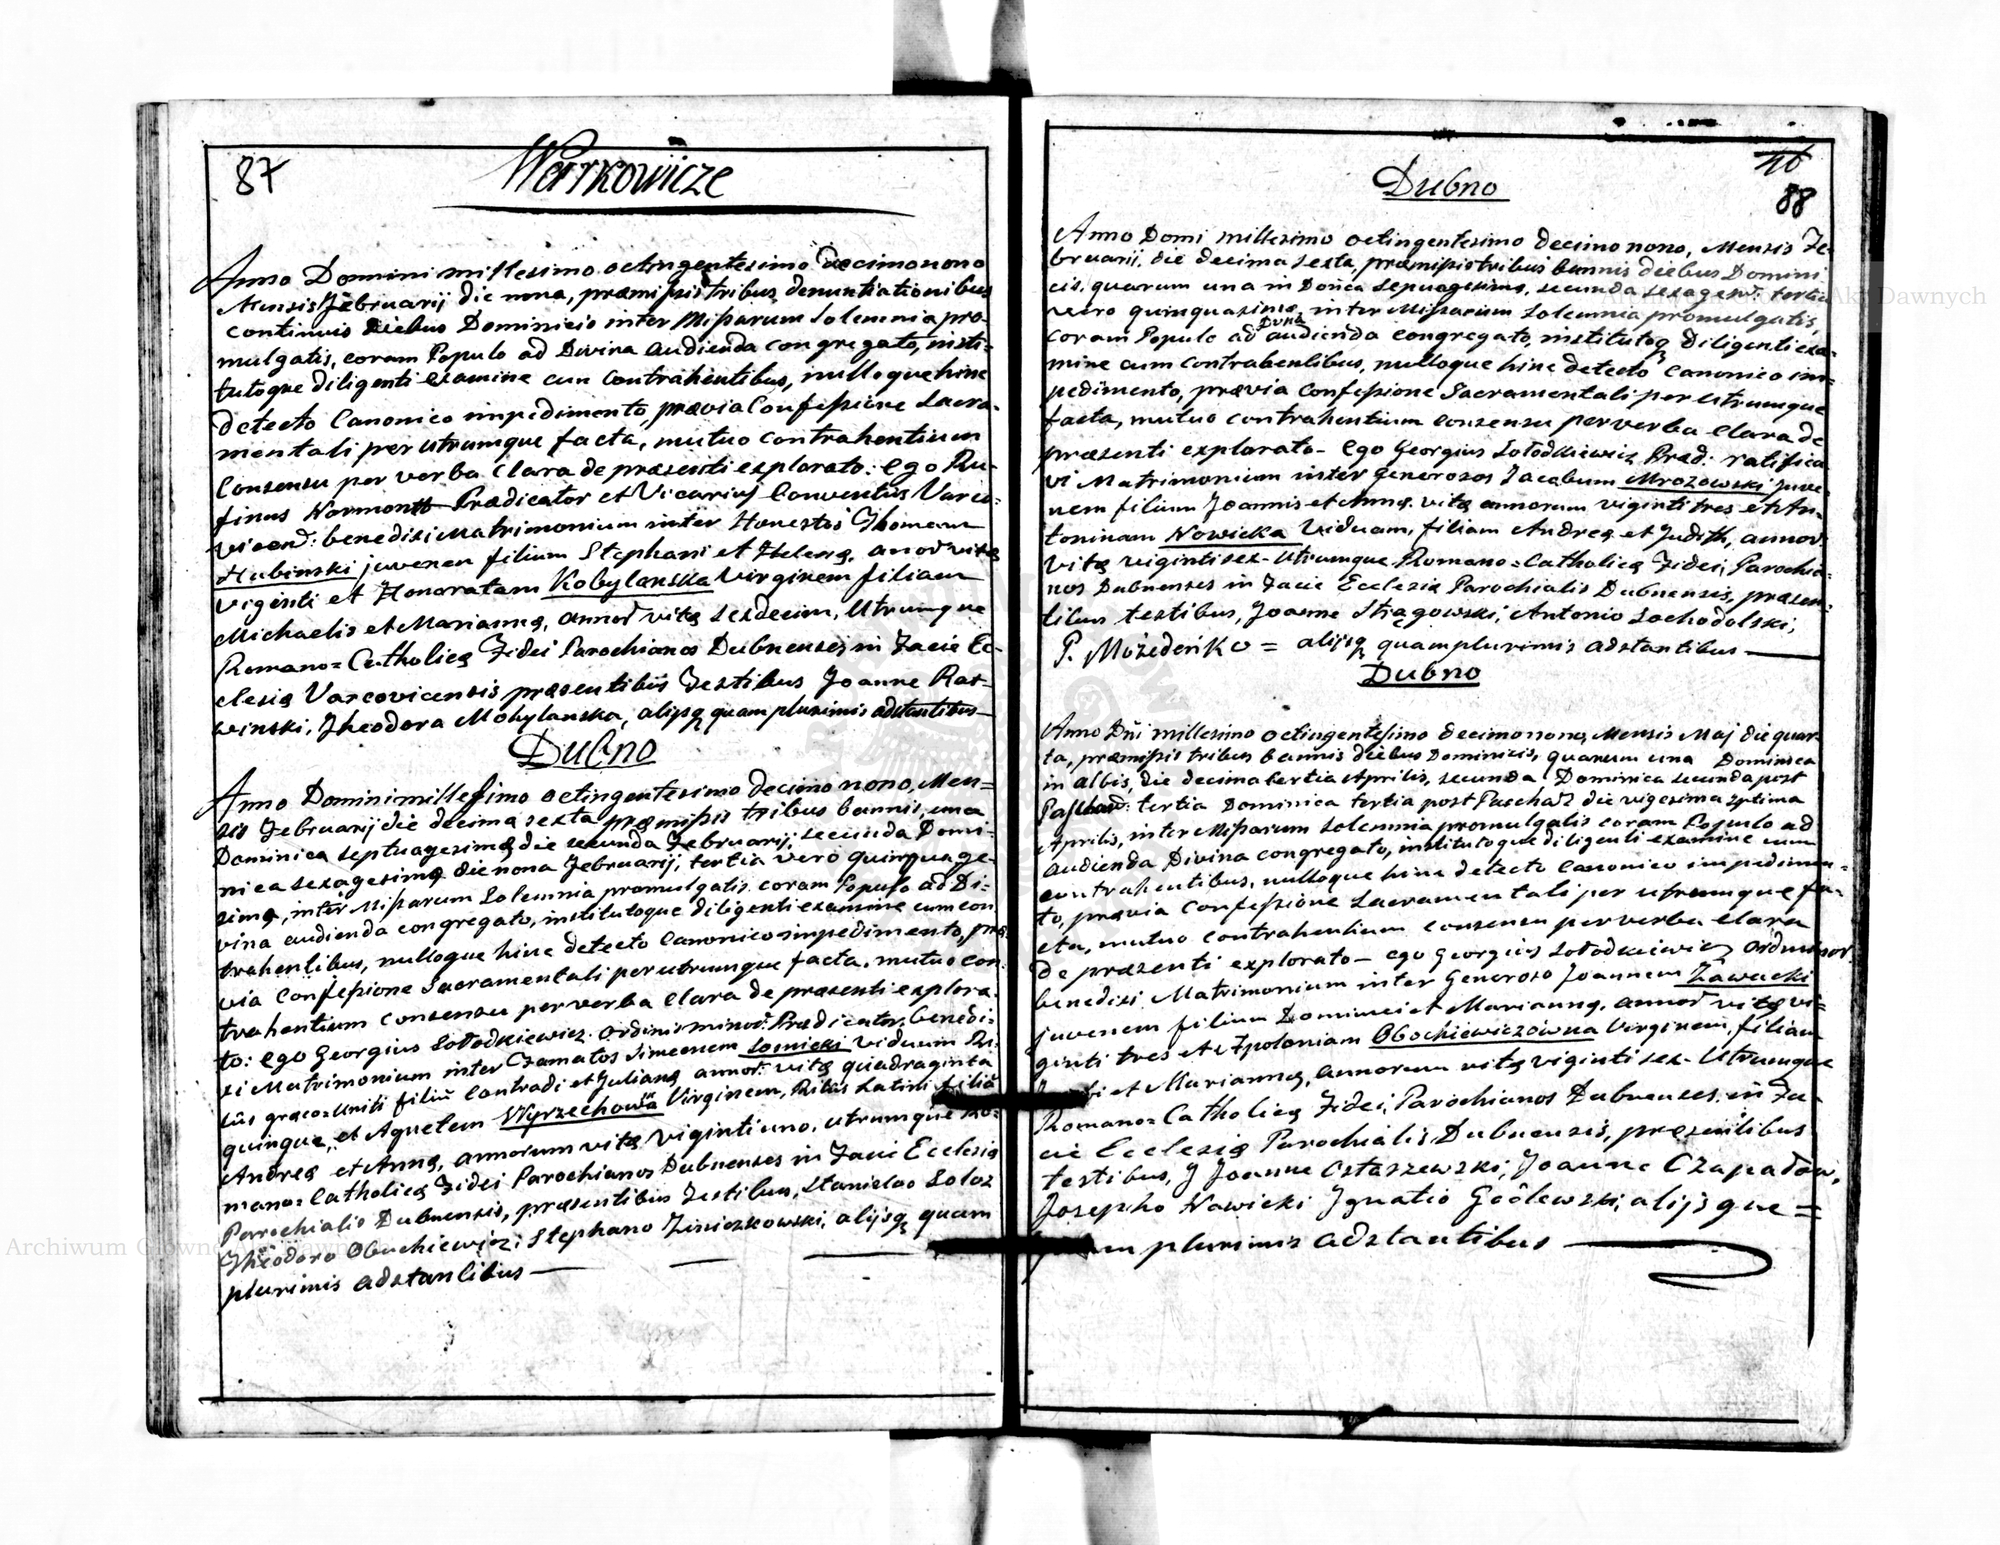 87
Warkowicze
Anno Domini millesimo octingentesimo decimo nono
Mensis Februarij die nona, præmissis tribus denuntiationibus
continuis diebus Dominicis inter Missarum solemnia pro-
mulgatis, coram Populo ad Divina audienda congregato, insti-
tutoque diligenti examine cum Contrahentibus, nulloque hinc
detecto Canonico impedimento, prævia Confessione Sacra-
mentali per utrumque facta, mutuo contrahentium
Consensu per verba clara de præsenti explorato: Ego Ru-
finus Normontt Prædicator et Vicarius Conventus Varco-
vicen: benedixi Matrimonium inter Honestos Thomam
Hubinski juvenem filium Stephani et Helenę, annor vitę
viginti et Honoratam Kobylanska Virginem filiam
Michaelis et Mariannę, annor vitę sexdecim, Utrumque
Romano=Catholicę Fidei Parochianos Dubnenses in Facie Ec-
clesię Varcovicensis præsentibus Testibus Joanne Ras-
winski, Theodora Mohylanska, alijsq quamplurimis adstantibus
Dubno
Anno Domini millesimo octingentesimo decimo nono, Men=
sis Februarij die decima sexta præmissis tribus bannis, una
Dominica septuagesimę die secunda Februarij, secunda Domi-
nica sexagesimę die nona Februarij, tertia vero quinquage-
simę, inter Missarum Solemnia promulgatis coram Populo ad Di-
vina audienda congregato, institutoque diligenti examine cum con
trahentibus, nulloque hinc detecto Canonico impedimento, præ
via Confessione Sacramentali per utrumque facta, mutuo con
trahentium consensu per verba clara de præsenti explora-
to: ego Georgius Sołodkiewicz Ordinis minor: Prædicator, benedi-
xi Matrimonium inter Famatos Simeonem Łosnicki viduum Ri-
tus græco=Uniti filiū Conradi et Julianę annor: vitę quadraginta
quinque, et Agnetem Wyrzechowa Virginem, Ritus Latini filiā
Andreę et Annę, annorum vitę viginti uno, utrumque Ro=
mano=Catholicę Fidei Parochianos Dubnenses in Facie Ecclesię
Parochialis Dubnensis, præsentibus Testibus, Stanislao Soloz
Theodoro Obuchiewicz, Stephano Ziniezkowski, alijsq quam
plurimis adstantibus
88
Dubno
Anno Domi millesimo octingentesimo decimo nono, Mensis Fe-
bruarij die decima sexta, præmissis tribus bannis diebus Domini
cis, quarum una in Donica Septuagesimę, secunda sexagesi: tertia
vero quinquasimę, inter Missarum Solemnia promulgatis,
coram Populo ad Dvna audienda congregato, institutoq diligenti exa-
mine cum contrahentibus, nulloque hinc detecto Canonico im-
pedimento, prævia Confessione Sacramentali per Utrumque
facta, mutuo contrahentium Consensu per verba Clara de
præsenti explorato- Ego Georgius Sołodkiewicz Præd: ratifica
vi Matrimonium inter Generosos Jacobum Mrozowski juve-
nem filium Joannis et Annę, vitę annorum viginti tres et An-
toninam Nowicka Viduam, filiam Andreę et Judith, annor
vitę viginti sex- Utrumque Romano=Catholicę Fidei, Parochia-
nos Dubnenses in Facie Ecclesię Parochialis Dubnensis, præsen-
tibus testibus, Joanne Stręgowski, Antonio Suchodolski,
P. Możedeńko = alijsq quamplurimis adstantibus
Dubno
Anno Dñi millesimo octingentesimo decimonono, Mensis Maj die quar-
ta, præmissis tribus bannis diebus Dominicis, quarum una Dominica
in Albis, die decima tertia Aprilis, secunda Dominica secunda post
Paschad: tertia Dominica tertia post Pascha die vigesima septima
Aprilis, inter Missarum solemnia promulgatis coram Populo ad
audienda Divina congregato, institutoque diligenti examine cum
contrahentibus, nulloque hinc detecto canonico impedimen-
to, prævia Confessione Sacramentali per utrumque fa-
cta, mutuo contrahentium consensu per verba Clara
de præsenti explorato- ego Georgius Sołodkiewicz Ord minor
benedixi Matrimonium inter Generoso Joannem Zawacki
juvenem filium Dominici et Mariannę, annor vitę vi=
ginti tres et Apoloniam Obochiewiczowna Virginem, filiam
et Mariannę, annorum vitę viginti sex- Utrumque
Romano=Catholicę Fidei, Parochianos Dubnenses, in Fa-
cie Ecclesię Parochialis Dubnensis, præsentibus
testibus, J Joanne Ostaszewski, Joanne Czapadow,
Josepho Nawicki Ignatio Gòlewski, alijsque=
plurimis adstantibus
Archiwum Główne Akt Dawnych